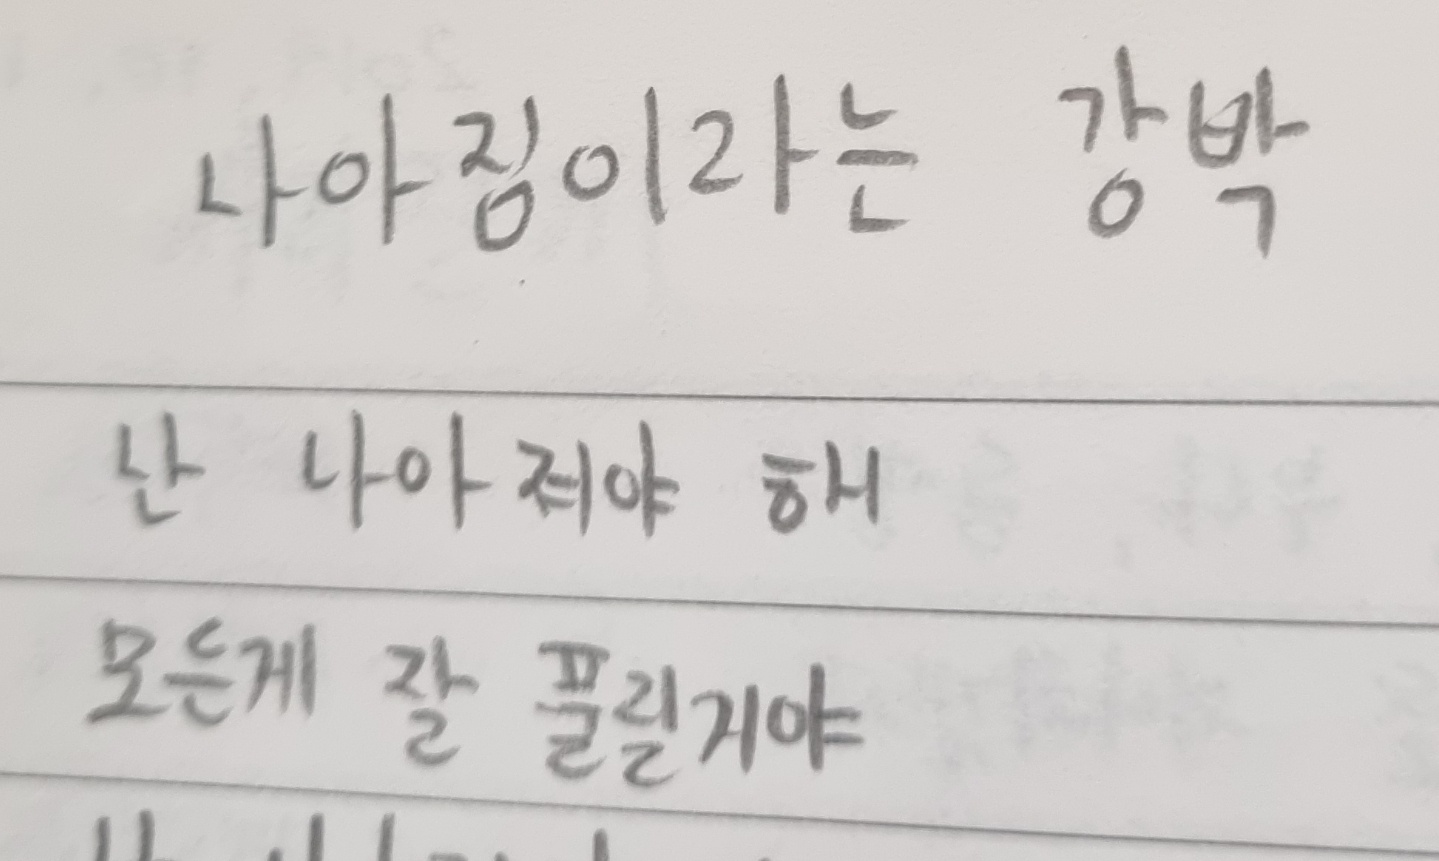 나아짐이라는 강박
난 나아져야 해
모든게 잘 풀릴거야